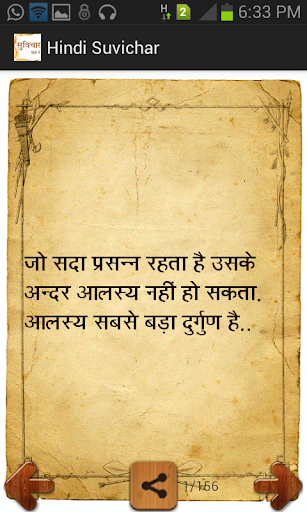 H 2 6:33 PM
सुविचार Hindi Suvichar
जो सदा प्रसन्न रहता है उसके
अन्दर आलस्य नहीं हो सकता.
आलस्य सबसे बड़ा दुर्गुण है..
1/166